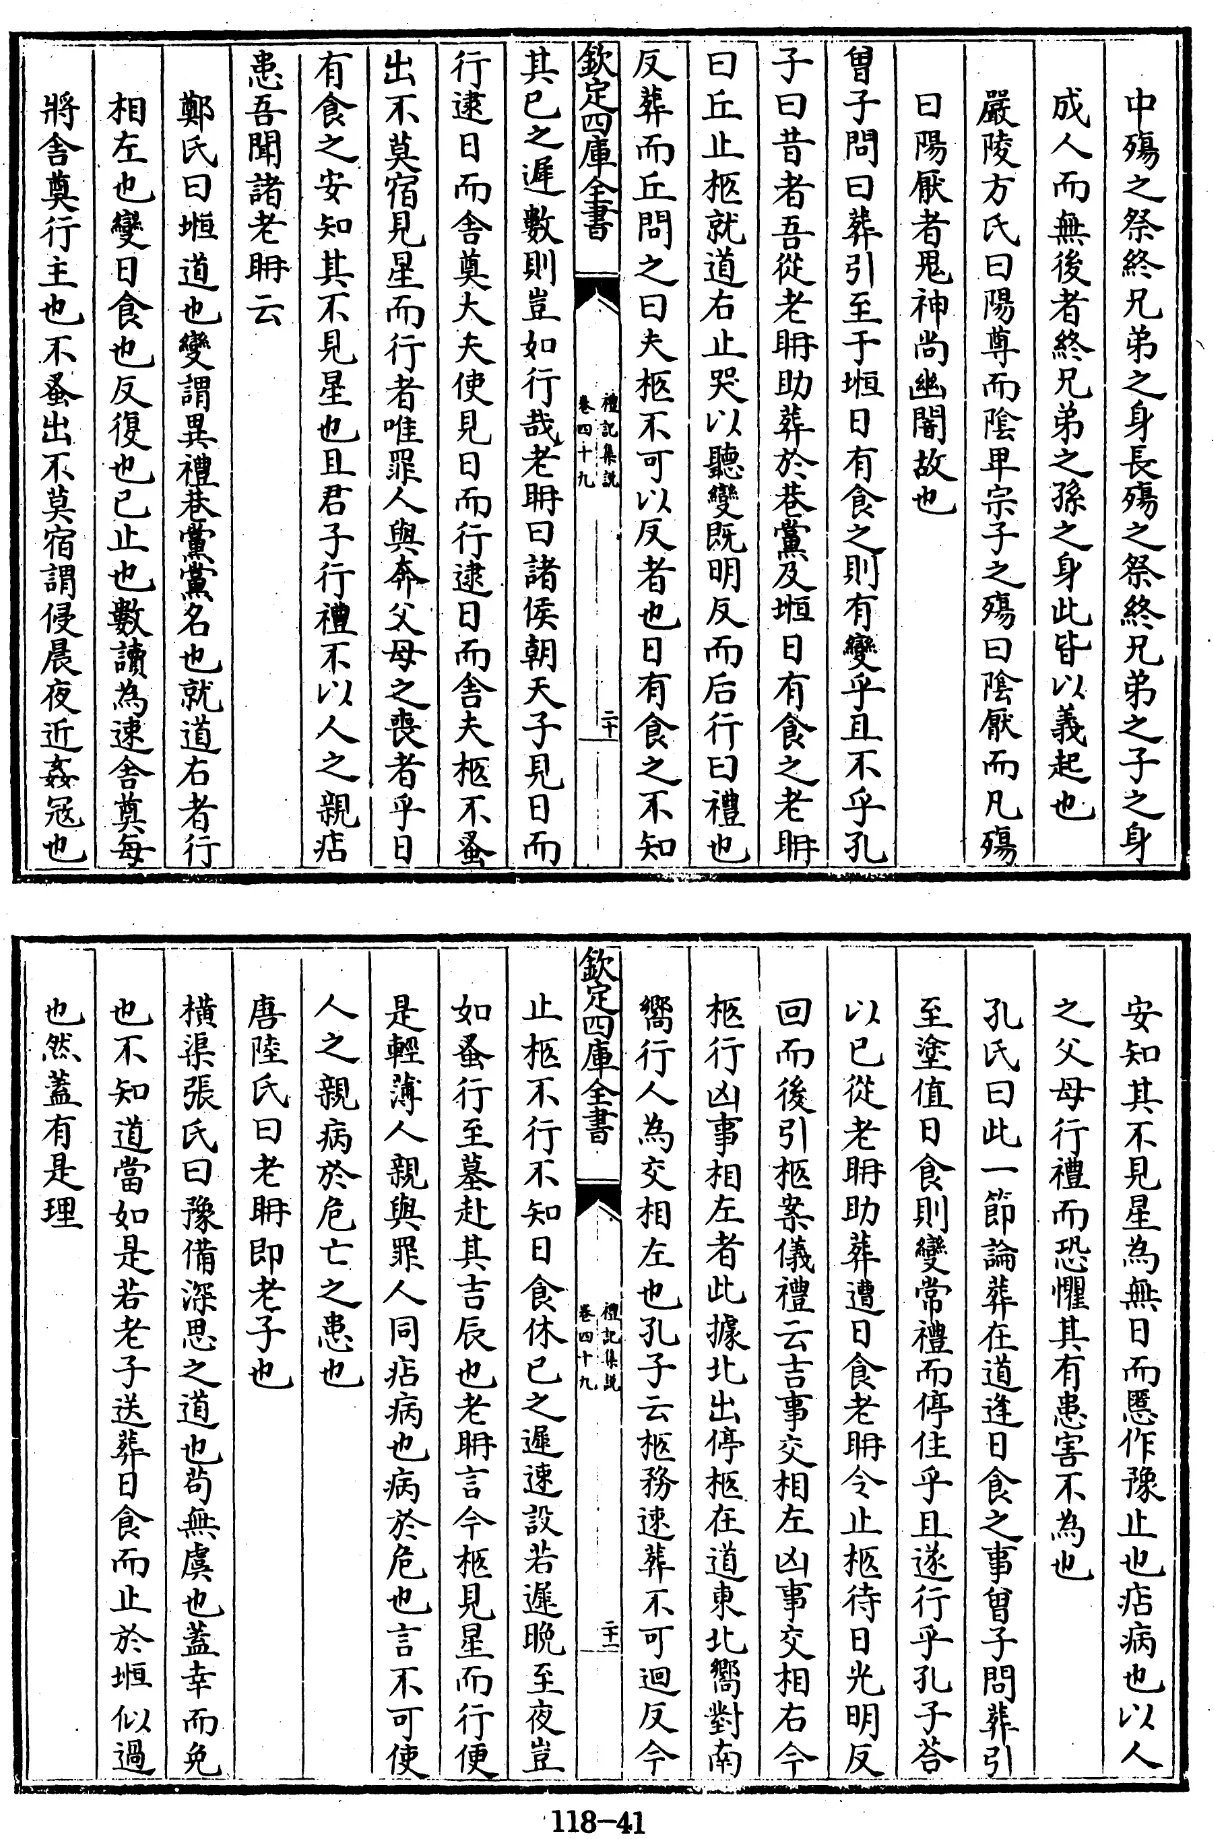 中殤之祭終兄弟之身長殤之祭終兄弟之子之身
成人而無後者終兄弟之孫之身此皆以義起也
嚴陵方氏曰陽尊而陰卑宗子之殤曰陰厭而凡殤
曰陽厭者鬼神尚幽闇故也
曾子問曰葬引至于堩日有食之則有變乎且不乎孔
子曰昔者吾從老耼助葬於巷黨及堩日有食之老耼
曰丘止柩就道右止哭以聽變既明反而后行曰禮也
反葬而丘問之曰夫柩不可以反者也日有食之不知
欽定四庫全書
禮記集說
卷四十九
二十
其已之遲數則豈如行哉老耼曰諸侯朝天子見日而
行逮日而舍奠大夫使見日而行逮日而舍夫柩不蚤
出不莫宿見星而行者唯罪人與奔父母之喪者乎日
有食之安知其不見星也且君子行禮不以人之親痁
患吾聞諸老耼云
鄭氏曰堩道也變謂異禮巷黨黨名也就道右者行
相左也變日食也反復也已止也數讀為速舍奠每
將舍奠行主也不蚤出不莫宿謂侵晨夜近姦冦也
安知其不見星為無日而慝作豫止也痁病也以人
之父母行禮而恐懼其有患害不為也
孔氏曰此一節論葬在道逢日食之事曾子問葬引
至塗值日食則變常禮而停住乎且遂行乎孔子荅
以已從老耼助葬遭日食老耼令止柩待日光明反
回而後引柩案儀禮云吉事交相左凶事交相右今
柩行凶事相左者此據北出停柩在道東北嚮對南
嚮行人為交相左也孔子云柩務速葬不可迴反今
欽定四庫全書
禮記集說
卷四十九
二十一
止柩不行不知日食休已之遲速設若遲晚至夜豈
如蚤行至墓赴其吉辰也老耼言今柩見星而行便
是輕薄人親與罪人同痁病也病於危也言不可使
人之親病於危亡之患也
唐陸氏曰老耼即老子也
橫渠張氏曰豫備深思之道也苟無虞也蓋幸而免
也不知道當如是若老子送葬日食而止於堩似過
也然蓋有是理
118-41